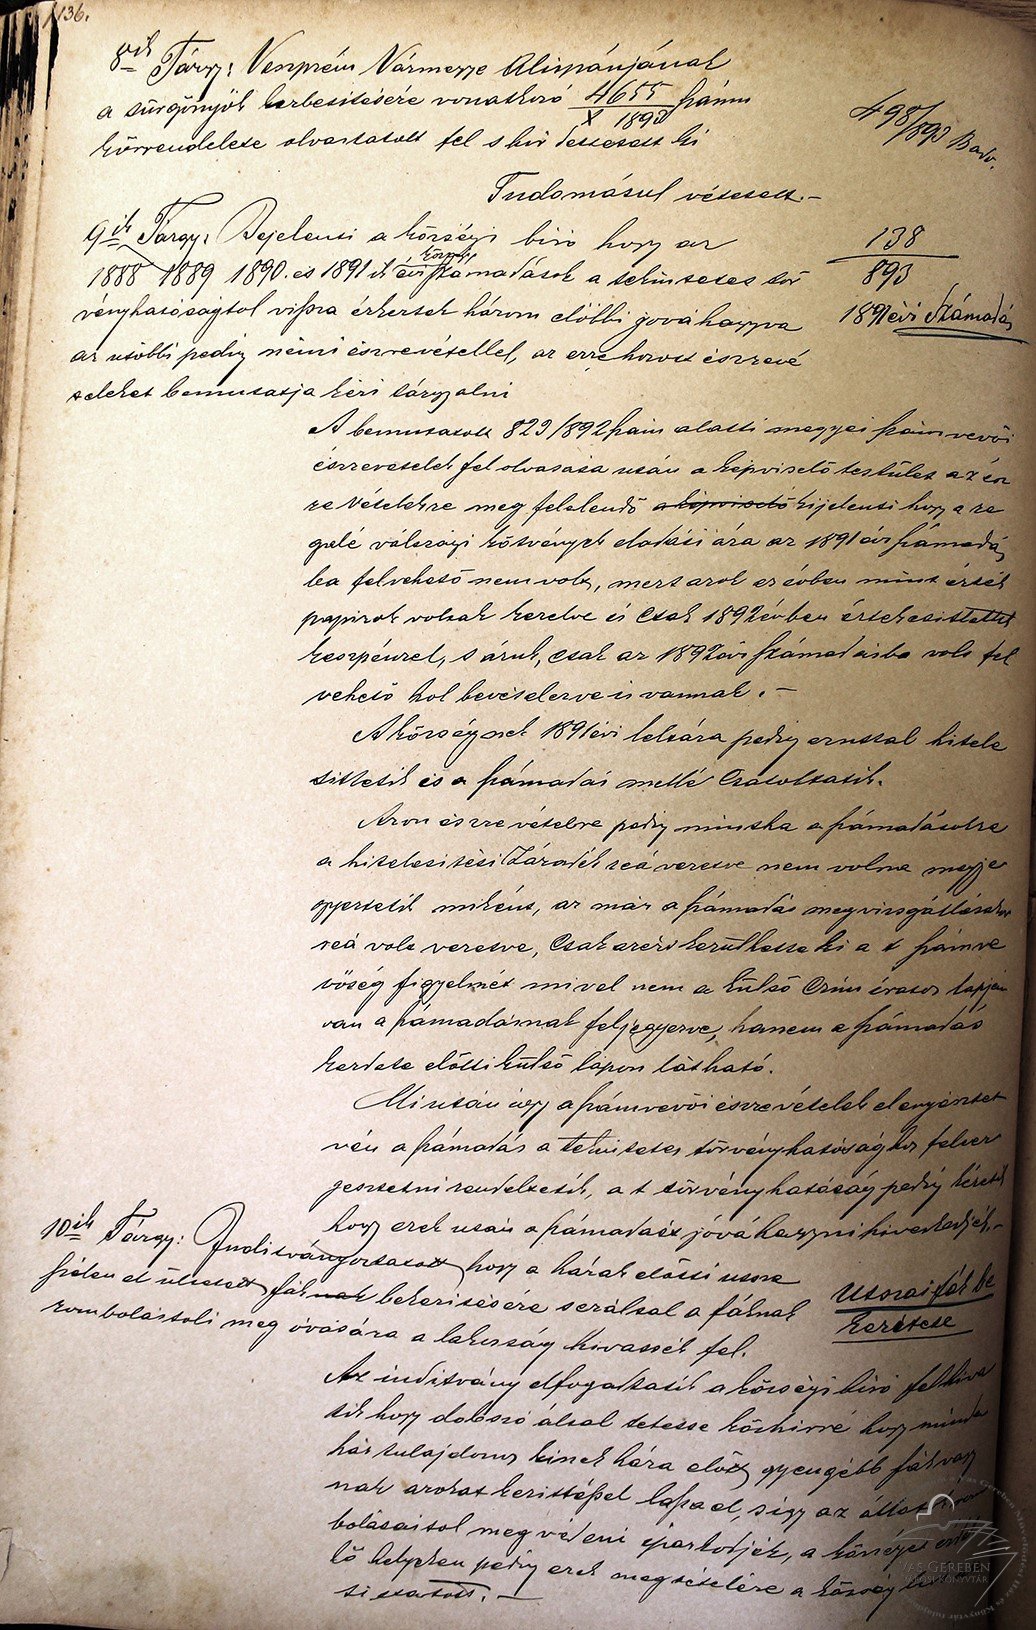 136.
8ik Tárgy: Veszprém Vármegye Alispánjának
a sürgönyök kézbesitésére vonatkozó 4655/X 1892 számu
körrendelete olvastatott fel s
498/892 Bar.
Tudomásul vétetett.-
9ik Tárgy: Bejelenti a községi biró hogy az
1888 1889 1890. és 1891ik évi községi számadások a tekintetes tör
vényhatóságtol vissza érkeztek három előbbi jováhagyva
az utóbbi pedig némi észrevétellel, az erre hozott észrevé
teleket bemutatja kéri tárgyalni
138
893
1891évi Számadás
A bemutatott 829/892 szám alatti megyei számvevői
észrevételek felolvasása után a képviselő testület az ész
re vételekre meg felelendő a képviselő kijelenti hogy a re
galé váltsági kötvények eladási ára az 1891 évi számadás
ba felvehető nem volt, mert azok ez évben mint érték
papirok voltak kezelve és csak 1892 évben értékesittettek
készpénzel, s áruk, csak az 1892 évi számadásba volt fel
vehető hol bevételezve is vannak. -
A községnek 1891 évi leltára pedig ezuttal hitele
sittetik és a számadás mellé Csatoltatik.
Azon észrevételre pedig mintha a számadásokra
a hitelesitési Záradék reá vezetve nem volna megje
gyeztetik miként, az már a számadás megvizsgálásakor
reá volt vezetve, Csak azért kerülhette ki a t számve
vőség figyelmét mivel nem a külső Czim iratos lapján
van a számadásnak feljegyezve, hanem a számadás
kezdete előtti külső lapon látható.
Miután igy a számvevői észrevételek elenyésztet
vén a számadás a tekintetes törvényhatósághoz felter
jesztetni rendeltetik, a t törvényhatóság pedig kéretik
hogy ezek után a számadást jóváhagyni kivánkodjék.-
10ik Tárgy: Inditványoztatott hogy a házak előtti utcza
szélen el ültetett fáknak bekeritésére szálltal a fáknak
rombolástoli meg óvására a lakosság hivassék fel.
Utszai fák be
keritése
Az inditvány elfogadtatik a községi biró felhiva
tik hogy dobszó által tetesse közhirré hogy minden
ház tulajdonos kinek háza előtt gyengébb fák vagy
nak azokat keritéssel lássa el, s igy az állatok rom
bolásaitol meg védeni iparkodjék, a
lő helyeken pedig ezek megtételére a község
sittatott. -
VAS GEREBEN
VÁROSI KÖNYVTÁR